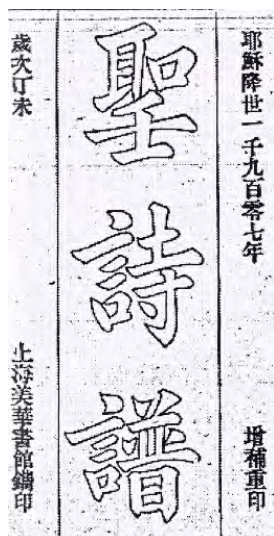 耶穌降世一千九百零七年
增補重印
聖詩譜
歲次丁未
上海美華書館鐫印